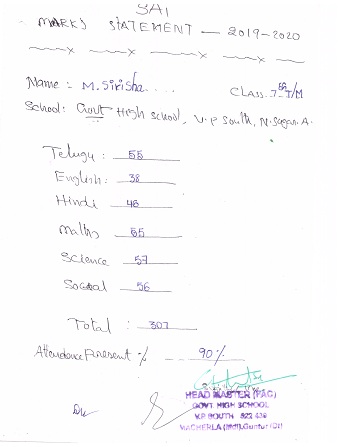 SA1
MARKS STATEMENT — 2019-2020
Name : M. Sirisha....
CLASS: 7th T/M
School: Govt High school, V.P South, N. Sagar. A.
Telugu : 55
English : 38
Hindi 46
Maths 55
Science 57
Social 56
Total : 307
Attendance Present % 90%
HEAD MASTER (FAC)
GOVT HIGH SCHOOL
V.P SOUTH 522 439
MACHERLA (Mdl), Guntur (Dt)